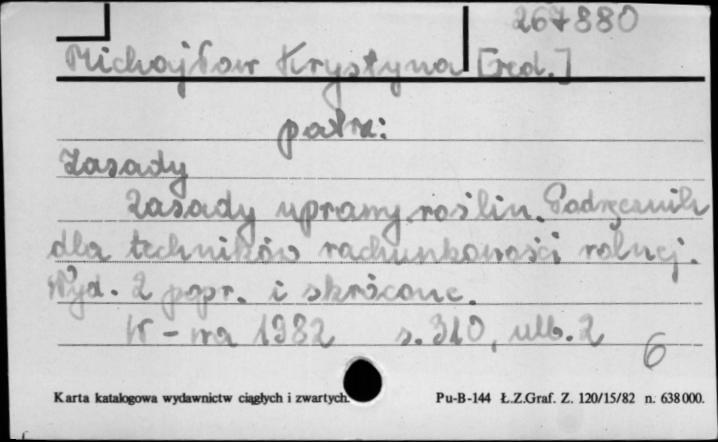 267880
Michajłow Krystyna [red.]
patrz:
Zasady
Zasady uprawy roślin. Podręcznik
dla techników rachunkowości rolnej.
Wyd. 2 popr. i skrócone.
W-wa 1982 s. 310, nlb. 2
6
Karta katalogowa wydawnictw ciągłych i zwartych. Pu-B-144 Ł.Z.Graf. Z. 120/15/82 n. 638000.